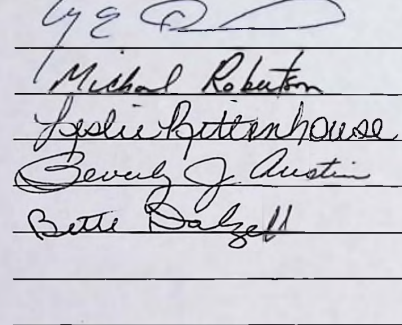 Michael Robertson
Leslie Rittenhouse
Beverly J. Austin
Bette Dalzell